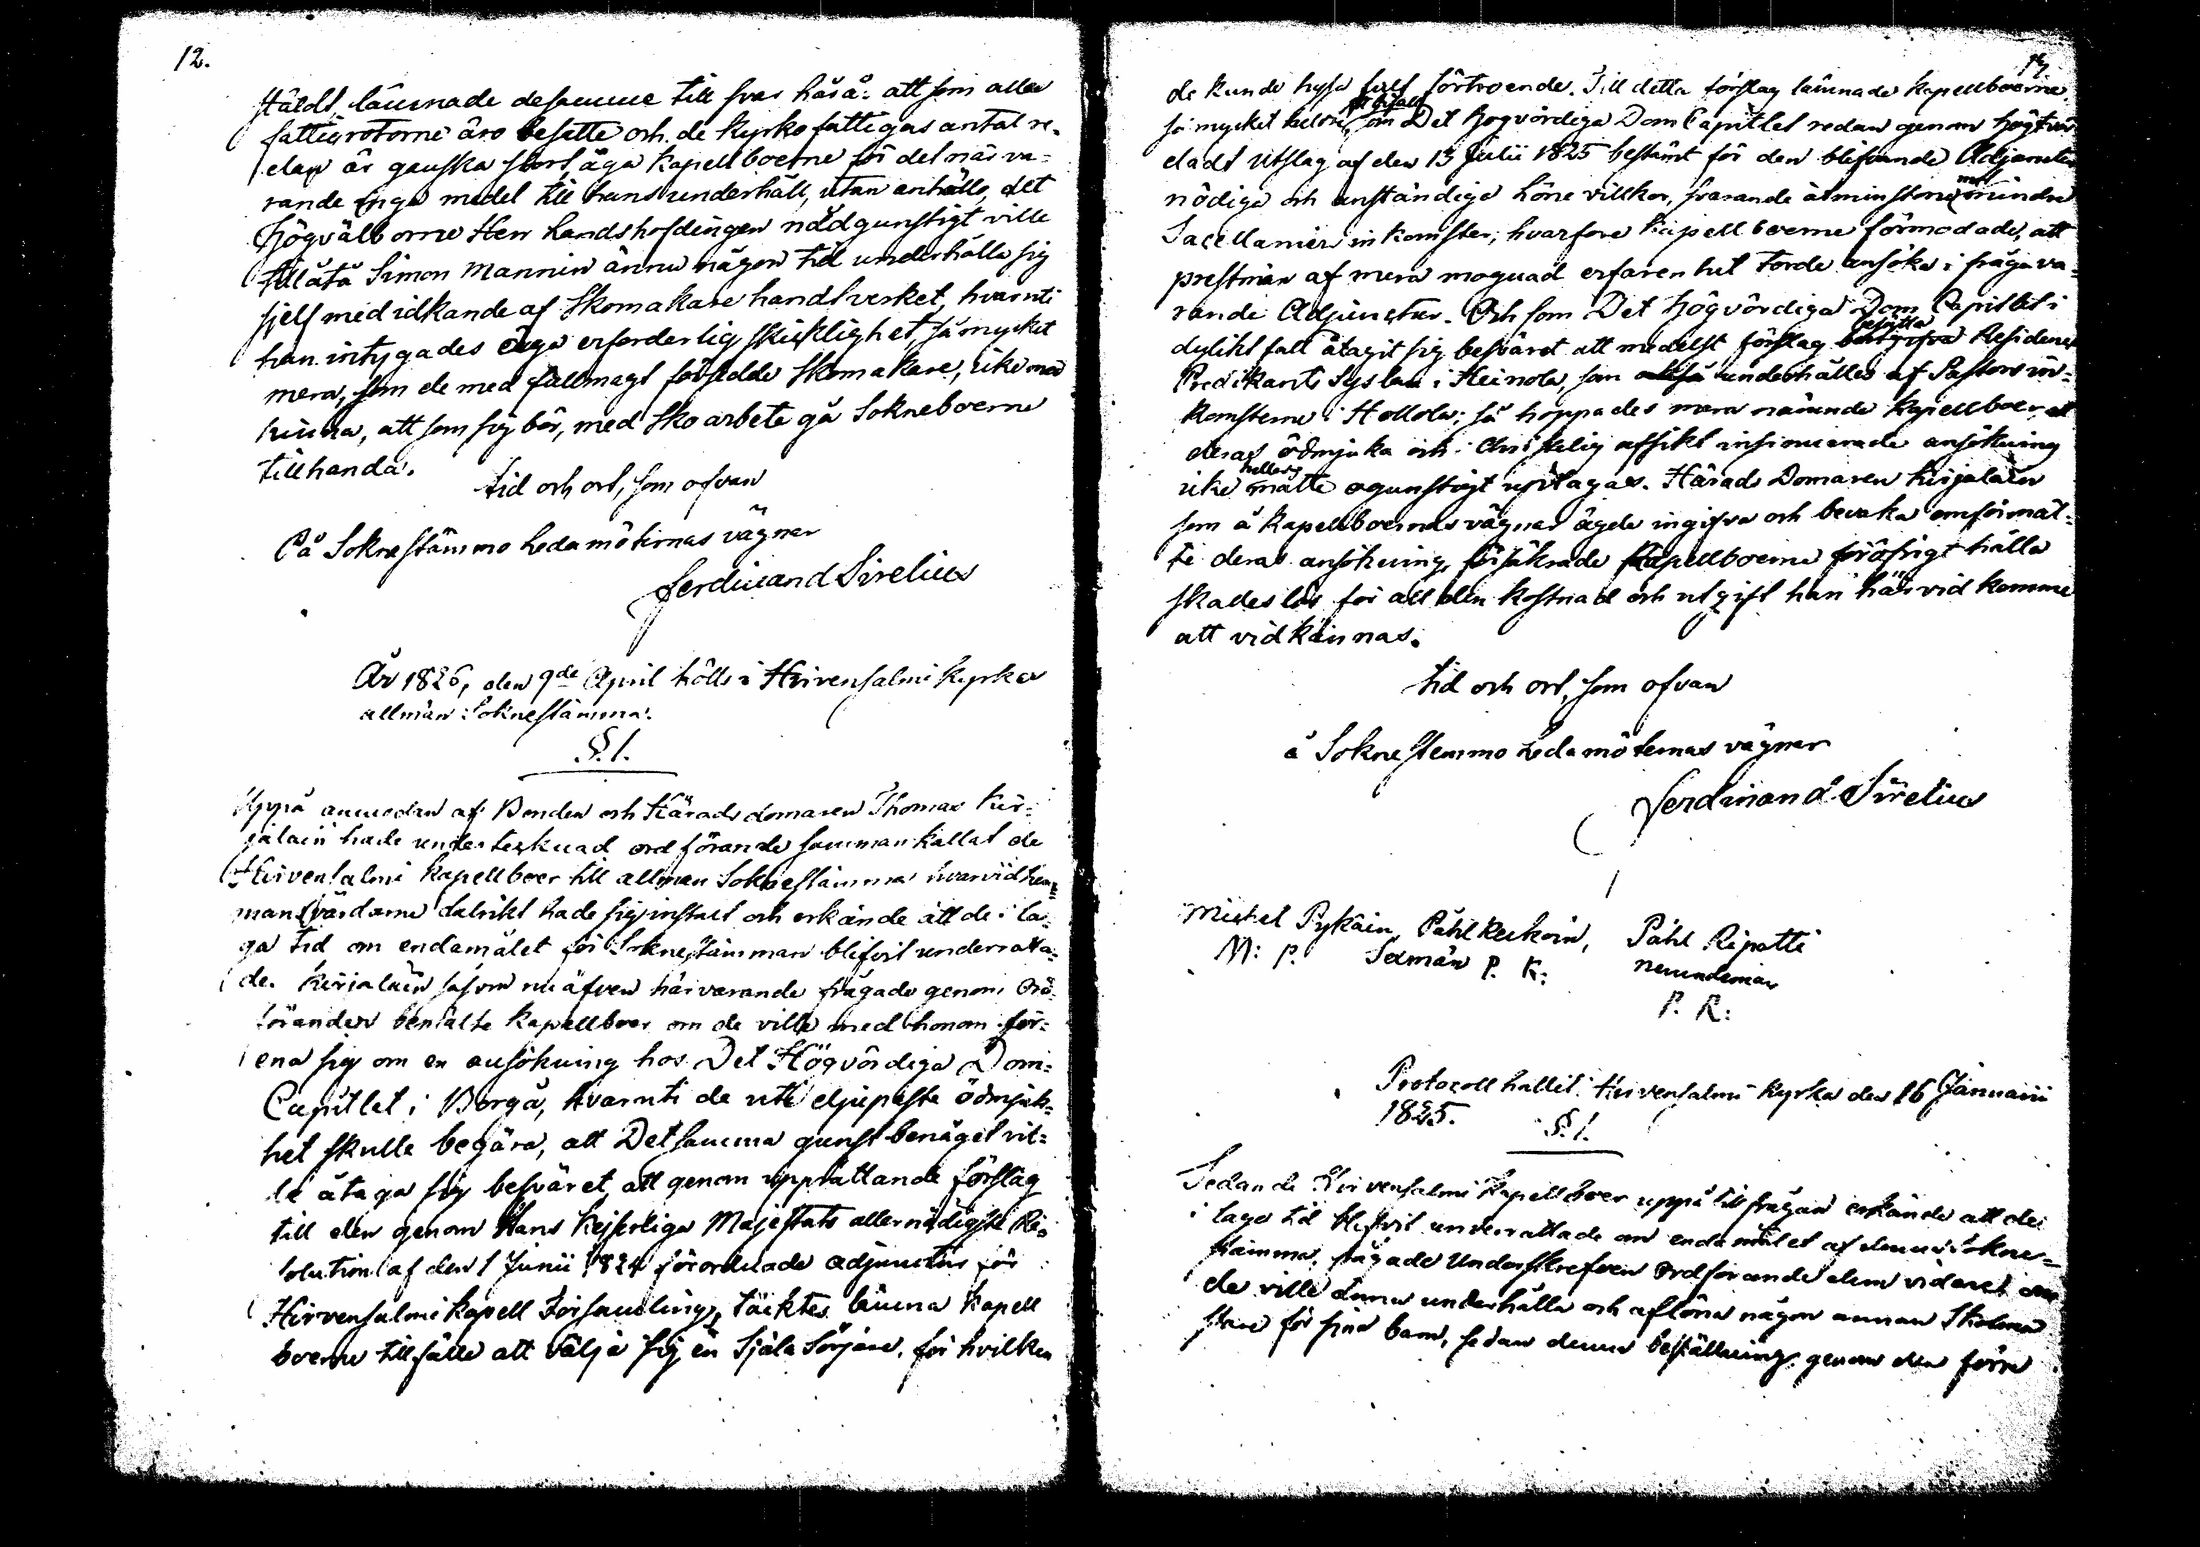 12.
ståldt, lämnade desamme till svar härå: att som alla
fattigrotorne äro besatte och de kyrko fattigas antal re-
dan är ganska stort, äga kapellboerne för det närva-
rande inga medel till hans underhåll, utan anhålla, det
Högvälborne Herr Landshöfdingen nådgunstigt ville
tillåta Simon Mannin ännu någon tid underhålla sig
sjelf med idkande af Skomakare handtverket, hvaruti
han intygades äga erforderlig skicklighet, så mycket
mera, som de med fullmagt försedde Skomakare, icke med
hinna, att som sig bör, med Skoarbete gå Sokneboerne
tillhanda.
tid och ort, som ofvan
På Soknestämmo Ledamöternas vägnar
Ferdinand Sirelius
År 1826, den 9de April hölls i Hirvensalmi kyrka
allmän Soknestämma.
§. 1.
Uppå anmodan af Bonden och Häradsdomaren Thomas Kir-
jalain hade undertecknad ordförande sammankallat de
Hirvensalmi kapellboer till allmän Soknestämma hvarvid hem-
mansvärdarne talrikt hade sig instält och erkände att de i la-
ga tid om endamålet för Soknestämman blifvit underrätta-
de. Kirjalain såsom nu äfven härvarande frågade genom Ord-
föranden bemälte kapellboer om de ville med honom för-
ena sig om en ansökning hos Det Högvördiga Dom-
Capitlet i Borgå, hvaruti de uti djupaste ödmjuk-
het skulle begära, att Detsamma gunstbenäget vil-
le åtaga sig besväret att genom upprättande förslag
till den genom Hans Kejserliga Majestäts allernådigste Re-
solution af den 1 Junii 1824 förordnade adjunctur för
Hirvensalmi kapell Församling, täcktes lämna kapell
boerne tillfälle att välja sig en Själa Sörjare, för hvilken
13
de kunde hysa fullt förtroende. Till detta förslag lämnade kapellboerne
så mycket heldre bifall som Det Högvördiga DomCapitlet redan genom högtvör
dadt Utslag af den 13 Julii 1825 bestämt för den blifvande Adjuncten
nödiga och anständiga löne villkor, svarande åtminstone mot mindre
Sacellanier inkomster; hvarföre kapellboerne förmodade, att
prestmän af mera mognad erfarenhet torde ansöka i fråga va-
rande Adjunctur. Och som Det Högvördiga Dom Capitlet i
dylikt fall åtagit sig besväret att medelst förslag besätta Residence
Predikants Syslan i Heinola, som underhålles af Pastors in-
komsterne i Hollola; så hoppades mera närände kapellboer att
deras ödmjuka och i Christelig affsikt insinuerade ansökning
icke hellre måtte ogunstigt upptagas. Härads Domaren Kirjalain
som å kapellboernas vägnar ägde ingifva och bevaka omförmäl-
te deras ansökning, försäkrade kapellboerne föröfrigt hålla
skadeslös för all den kostnad och utgift han härvid komme
att vidkännas.
tid och ort, som ofvan
å Soknestemmo Ledamöternas vägnar
Ferdinand Sirelius
Michel Pykäin, Påhl Keikoin, Påhl Ripatti
M: P. Sexmän P. K: nämndeman
P. R:
Protocoll hallit i Hirvensalmi kyrka den 16 Januarii
1825.
§. 1.
Sedan de Hirvensalmi kapellboer uppå tillfrågan erkände att de
i laga tid blifvit underrättade om endamålet af denna Sokne-
stämma, frågade Underskrefven Ordförande dem vidare om
de ville ännu underhålla och aflöna någon annan Skolmä
stare för sina barn, sedan denna beställning genom den förra